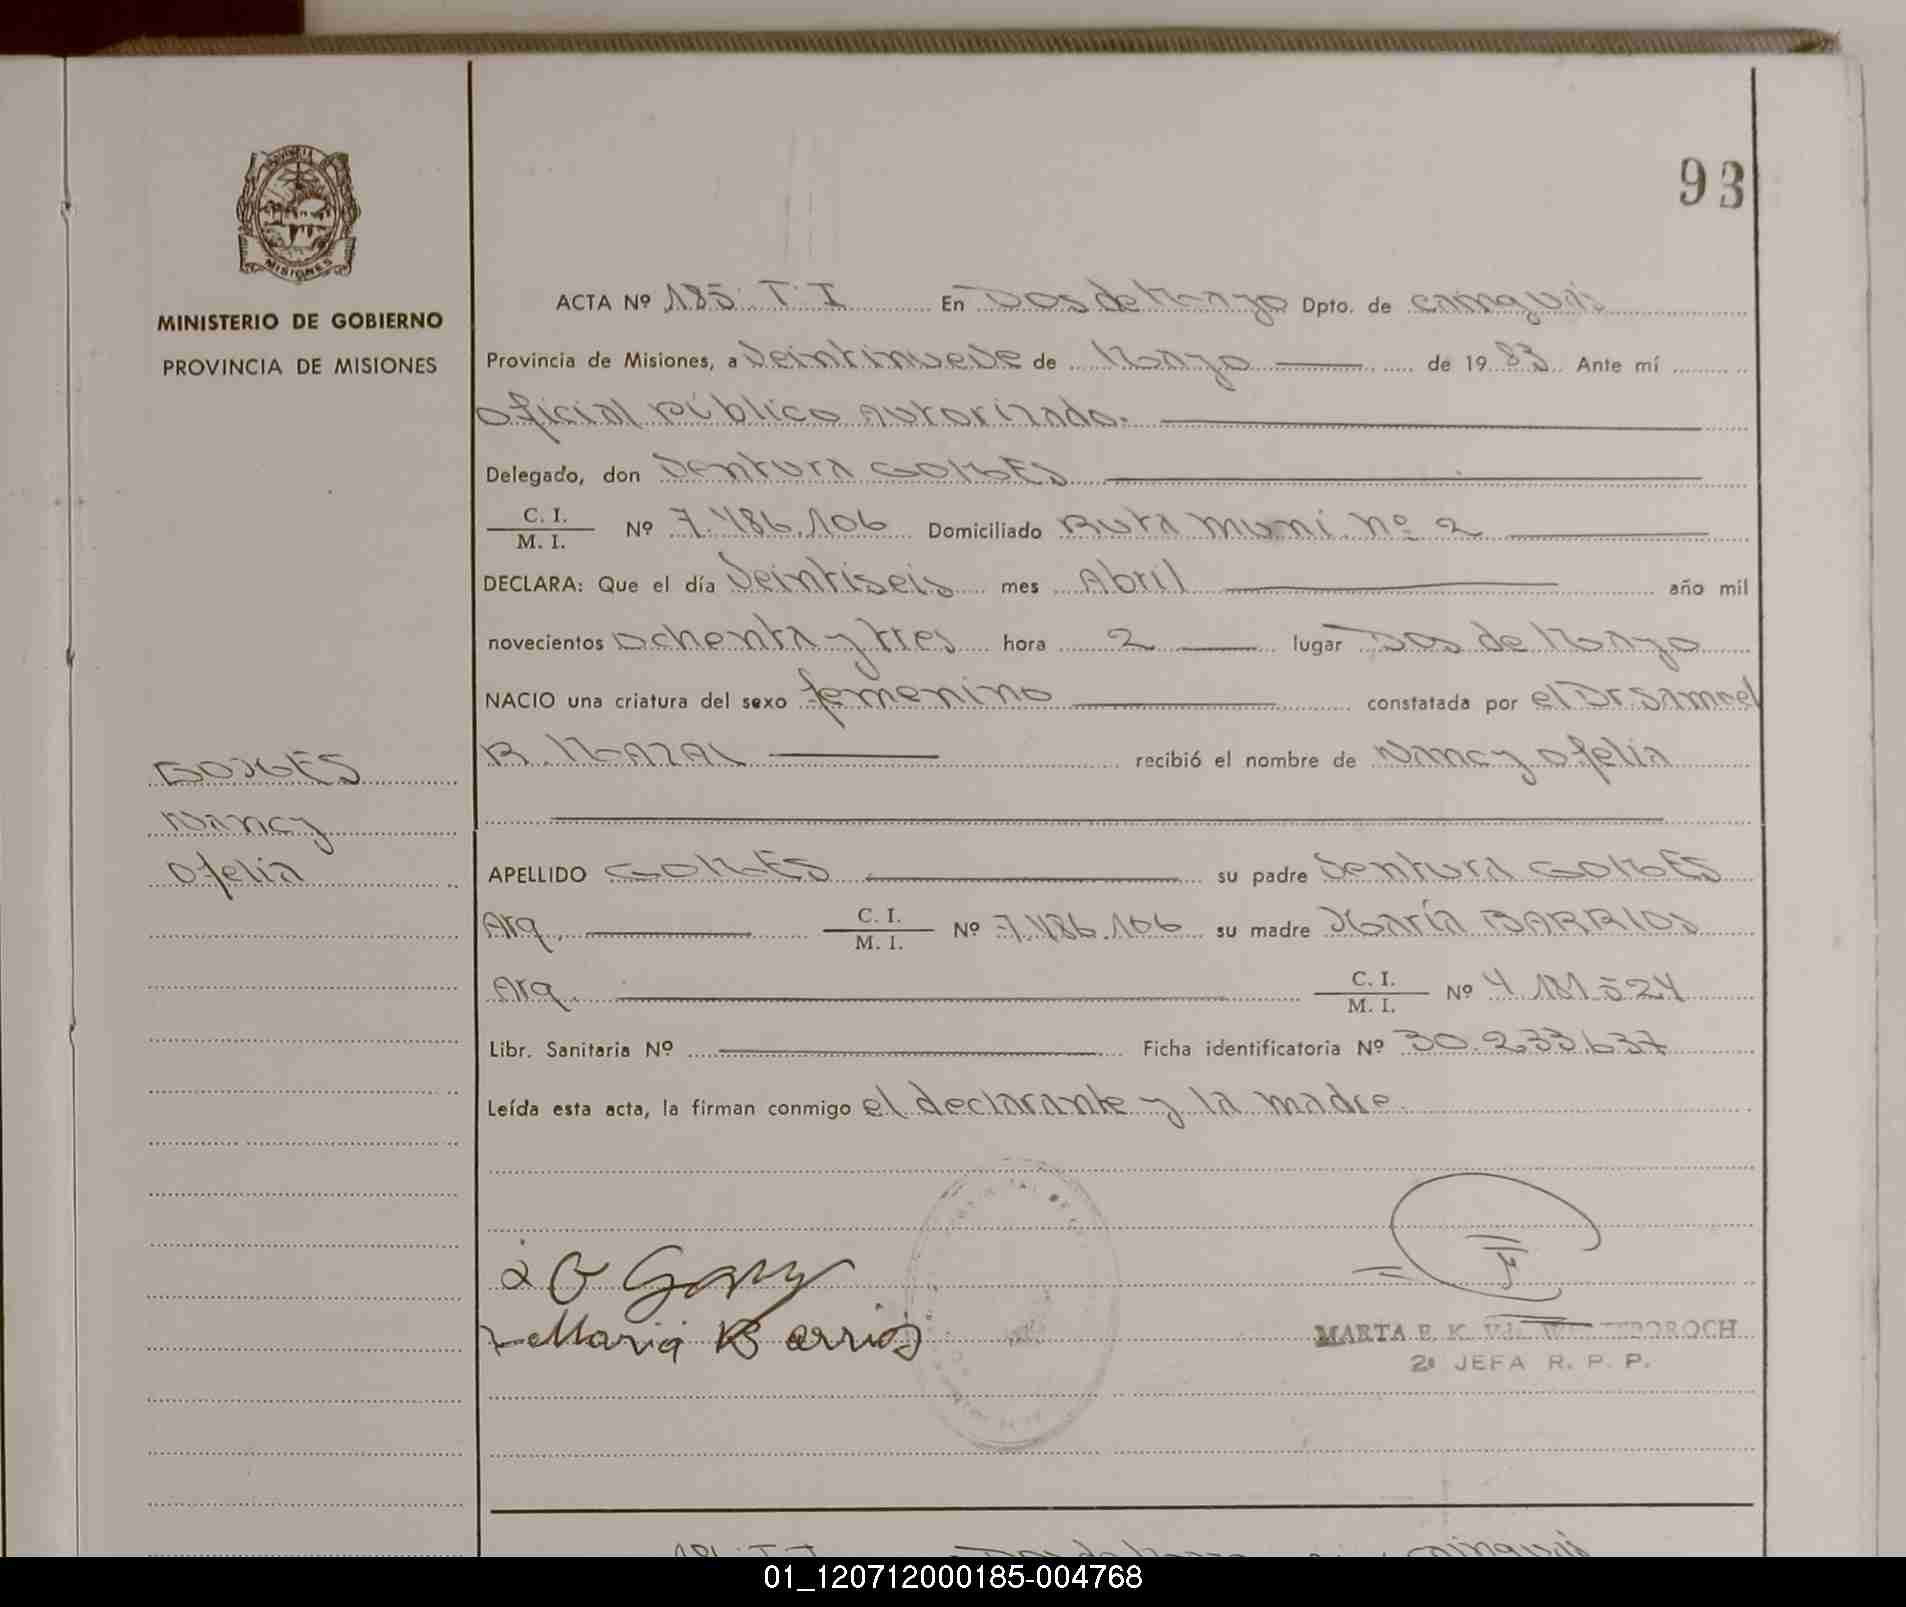 93
PROVINCIA DE
MISIONES
MINISTERIO DE GOBIERNO
PROVINCIA DE MISIONES
ACTA Nº 185 T I En Dos de Mayo Dpto. de cainguás
Provincia de Misiones, a veintinueve de Mayo de 1983 Ante mí
oficial público autorizado.
Delegado, don Ventura GOMES
C. I.
M. I. Nº 7.486.106 Domiciliado Ruta muni. nº 2
DECLARA: Que el día veintiseis mes Abril año mil
novecientos ochenta y tres hora 2 lugar Dos de Mayo
NACIO una criatura del sexo femenino constatada por el Dr Samoel
R. MAZAL recibió el nombre de Nancy Ofelia
GOMES
Nancy
Ofelia
APELLIDO GOMES su padre Ventura GOMES
Arg. C. I.
M. I. Nº 7.486.106 su madre María BARRIOS
Arg. C. I.
M. I. Nº 4.181.524
Libr. Sanitaria Nº Ficha identificatoria Nº 30.233.637
Leída esta acta, la firman conmigo el declarante y la madre.
Maria Barrios
MARTA E. K.
2º JEFA R. P. P.
01_120712000185-004768